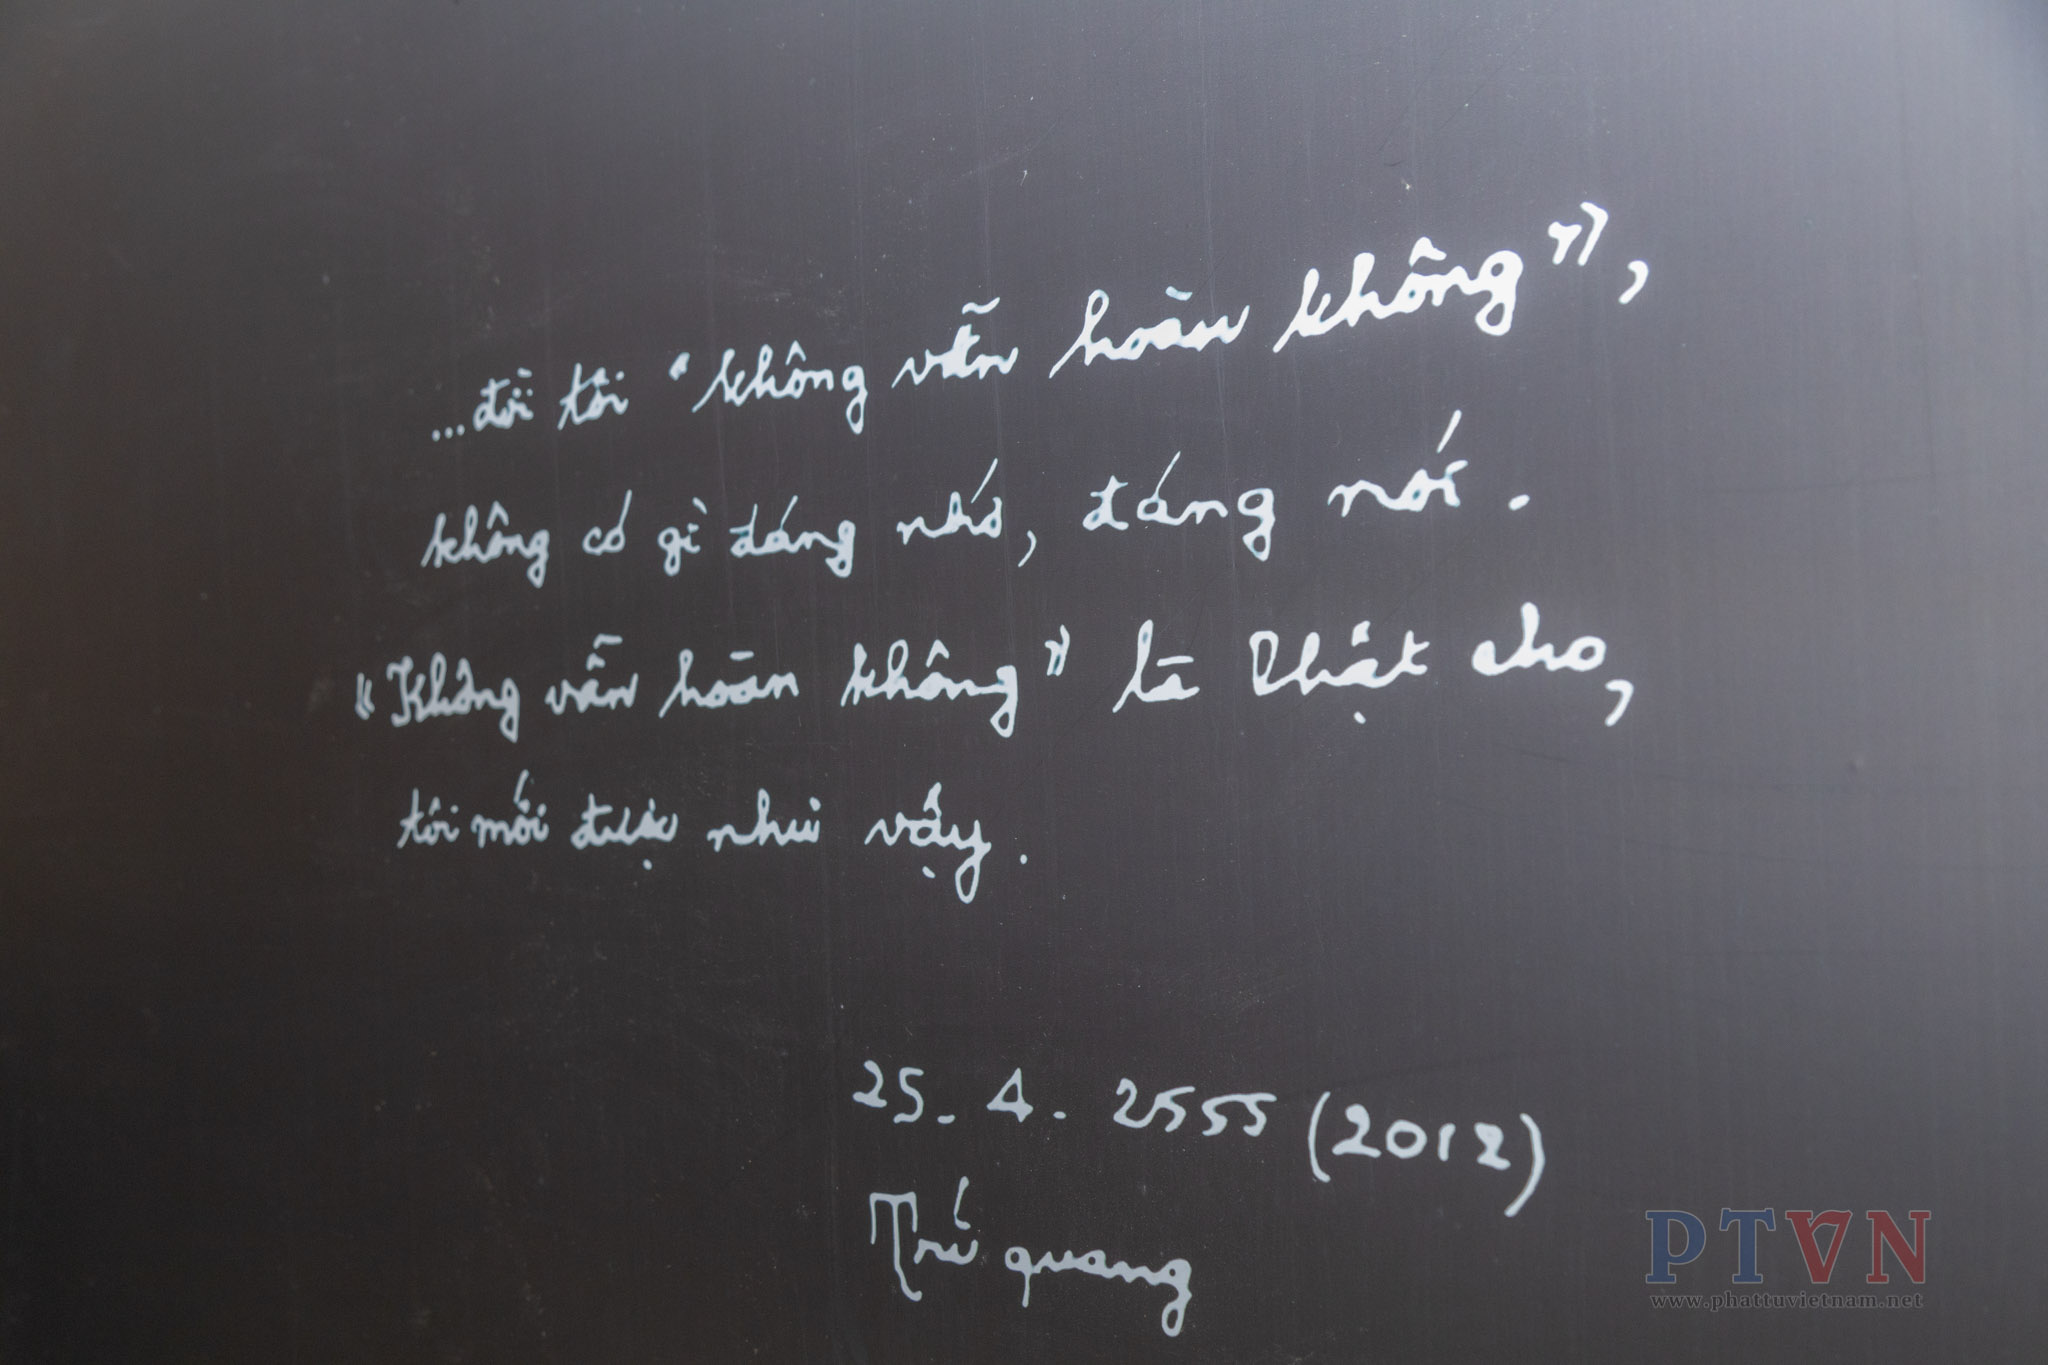 ...đời tôi "không vẫn hoàn không",
không có gì đáng nhớ, đáng nói.
"Không vẫn hoàn không" là Phật cho,
tôi mới được như vậy.
25.4.2555 (2012)
Trí quang
PTVN
www.phattuvietnam.net